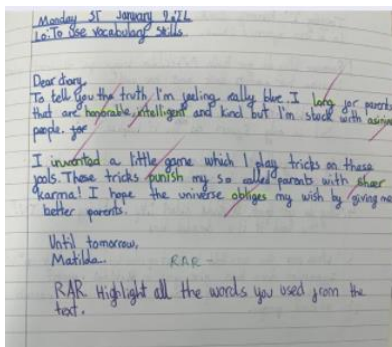 Monday 31st January 2022
Lo: To use vocabulary skills.
Dear diary,
To tell you the truth, I'm feeling really blue. I long for parents
that are honorable, intelligent and kind but I'm stuck with asinine
people. for
I invented a little game which I play tricks on these
fools. These tricks punish my so called parents with sheer
karma! I hope the universe obliges my wish by giving me
better parents.
Until tomorrow,
Matilda...
RAR -
RAR Highlight all the words you used from the
text.